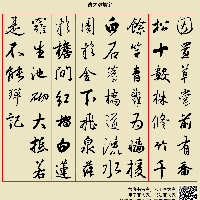 因置草堂前有喬
松十數株修竹千
餘竿青蘿為牆援
白石為橋道流水
周於舍下飛泉落
於檐間紅榴白蓮
羅生池砌大抵若
是不能殫記